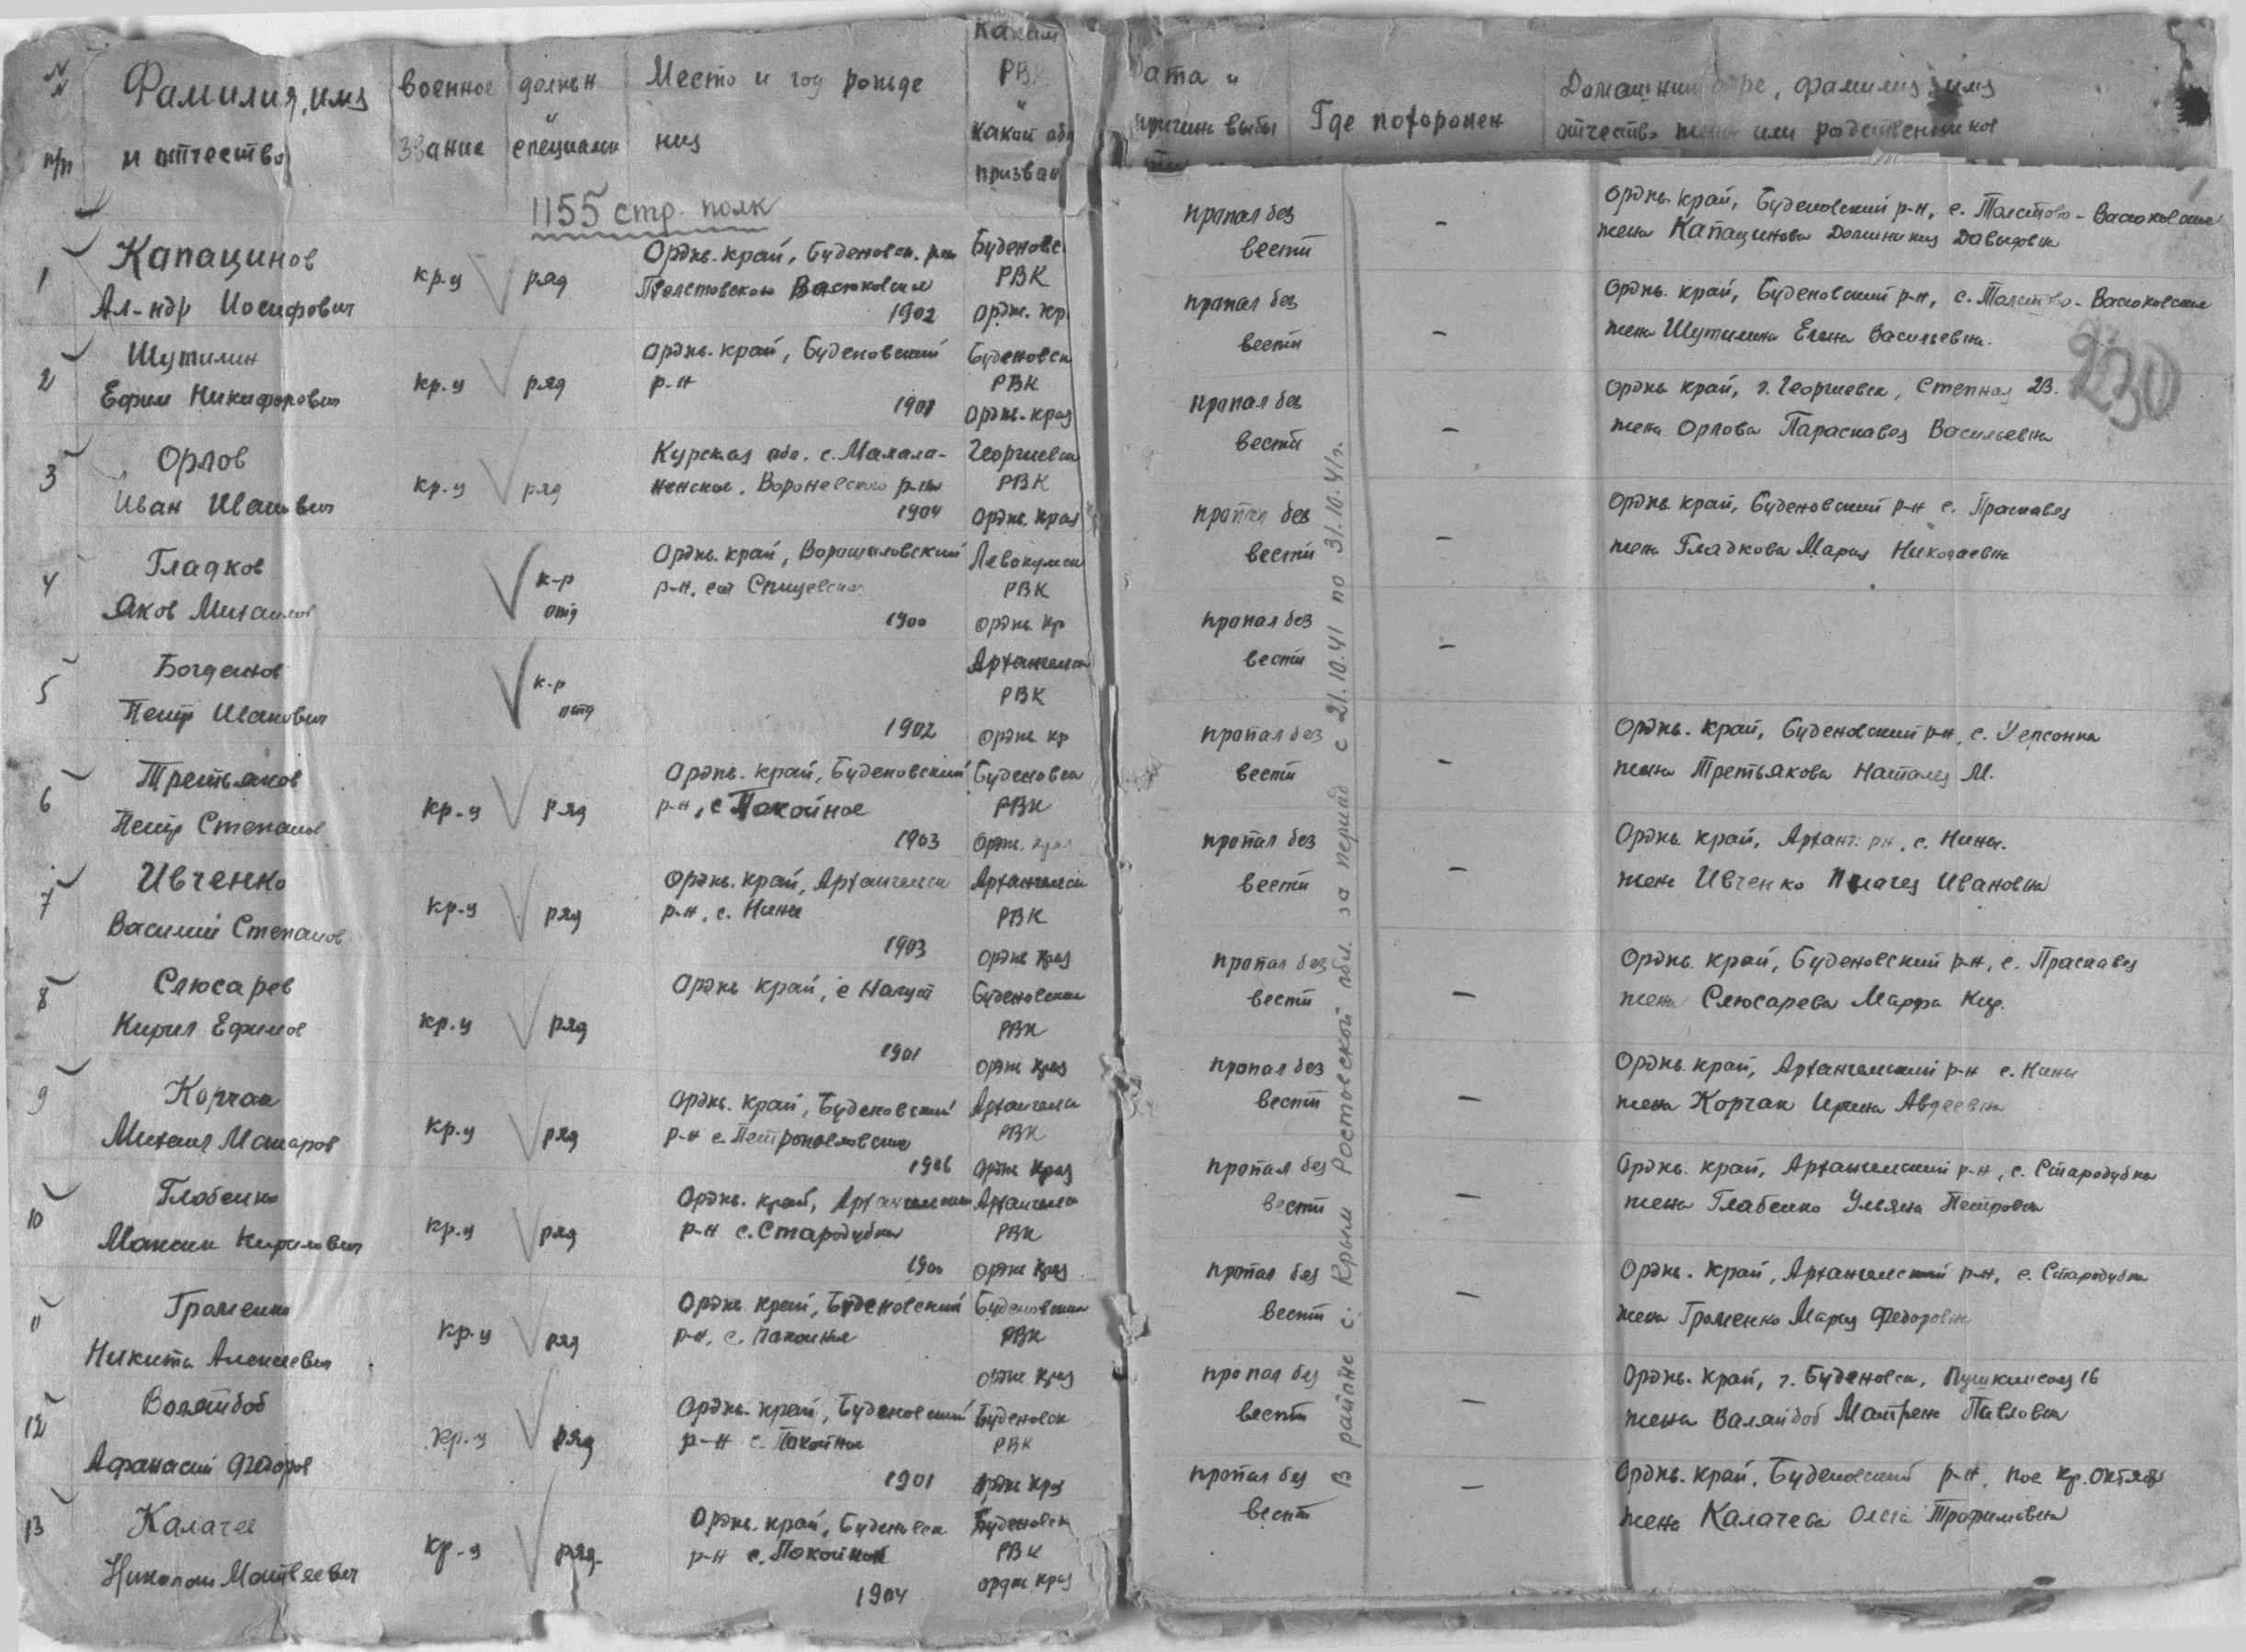 N
п/п
Фамилия, имя
и отчество
военное
звание
должн
и
специальн
Место и год рожде
ния
Каким
РВК
и
какой обл
призван
Дата и
причина выбы
тия
Где похоронен
Домашний адре, фамилия имя
отчество жены или родственников
1155 стр. полк
230
1
Капацинов
Ал-ндр Иосифович
кр-ц
ряд
Орджк. край, Буденовск. р-на
Толстовского Васюковское
1902
Буденовс
РВК
Ордж. кр.
пропал без
вести
–
Орджк. край, Буденовский р-н, с. Толстово-Васюковское
жена Капацинова Давыдовна
2
Шутилин
Ефим Никифорович
кр-ц
ряд
Орджк. край, Буденовский
р-н
1901
Буденовск
РВК
Ордж. край
пропал без
вести
–
Орджк. край, Буденовский р-н, с. Толстово-Васюковское
жена Шутилина Елена Васильевна.
3
Орлов
Иван Иванович
кр-ц
ряд
Курская обл. с.
р-на
1904
Георгиевск
РВК
Ордж. край
пропал без
вести
–
Орджк край, г. Георгиевск, Степная 23.
жена Орлова Параскавея Васильевна
4
Гладков
Яков Михайлов
к-р
отд
Орджк. край, Ворошиловский
р-н, Спицевская
1900
Левокумск
РВК
Орджк кр
пропал без
вести
–
Орджк край, Буденовский р-н с. Прасковея
жена Гладкова Мария Николаевна
5
Богданов
Петр Иванович
к-р
отд
1902
Архангельск
РВК
Орджк кр
пропал без
вести
–
6
Третьяков
Петр Степанов
кр-ц
ряд
Орджк. край, Буденовский
р-н, с Покойное
1903
Буденовск
РВК
Ордж. край
пропал без
вести
–
Орджк. край, Буденовский р-н, с.
жена Третьякова Наталея М.
7
Ивченко
Василий Степанов
кр-ц
ряд
Орджк. край, Архангельск
р-н, с. Нины
1903
Архангельск
РВК
Орджк край
пропал без
вести
–
Орджк край, Арханг. рн, с. Нины.
жена Ивченко Пелагея Ивановна
8
Слюсарев
Кирил Ефимов
кр-ц
ряд
Орджк край, с Нагут
1901
Буденовский
РВК
Ордж край
пропал без
вести
–
Орджк край, Буденовский р-н, с. Прасковея
жена Слюсарева Марфа Кир.
9
Корчак
Михаил Макаров
кр-ц
ряд
Орджк. край, Буденовский
р-н с. Петропавловское
1906
Архангельск
РВК
Ордж край
пропал без
вести
–
Орджк край, Архангельский р-н с. Нины
жена Корчак Ирина Авдеевна
10
Глобенко
Максим Кирилович
кр-ц
ряд
Орджк. край, Архангельский
р-н с. Стародубка
1900
Архангельск
РВК
Ордж край
пропал без
вести
–
Орджк. край, Архангельский р-н, с. Стародубка
жена Глабенко Ульяна Петровна
11
Громенко
Никита Алексеевич
кр-ц
ряд
Орджк край, Буденовский
р-н, с. Покойное
Буденовский
РВК
Ордж край
пропал без
вести
–
Орджк. край, Архангельский р-н, с. Стародубка
жена Громенко Мария Федоровна
12
Воляйбоб
Афанасий Федоров
кр-ц
ряд
Орджк. край, Буденовский
р-н с. Покойное
1901
Буденовск
РВК
Ордж край
пропал без
вести
–
Орджк. край, г. Буденовск, Пушкинская 16
жена Валяйбоб Матрена Павловна
13
Калачев
Николай Матвеевич
кр-ц
ряд.
Орджк. край, Буденовск
р-н с. Покойное
1904
Буденовск
РВК
ордж. край
пропал без
вести
–
Орджк. край, Буденовский р-н, пос Кр. Октябрь
жена Калачева Трофимовна
В районе с. Крым Ростовской обл. за период с 21.10.41 по 31.10.41г.